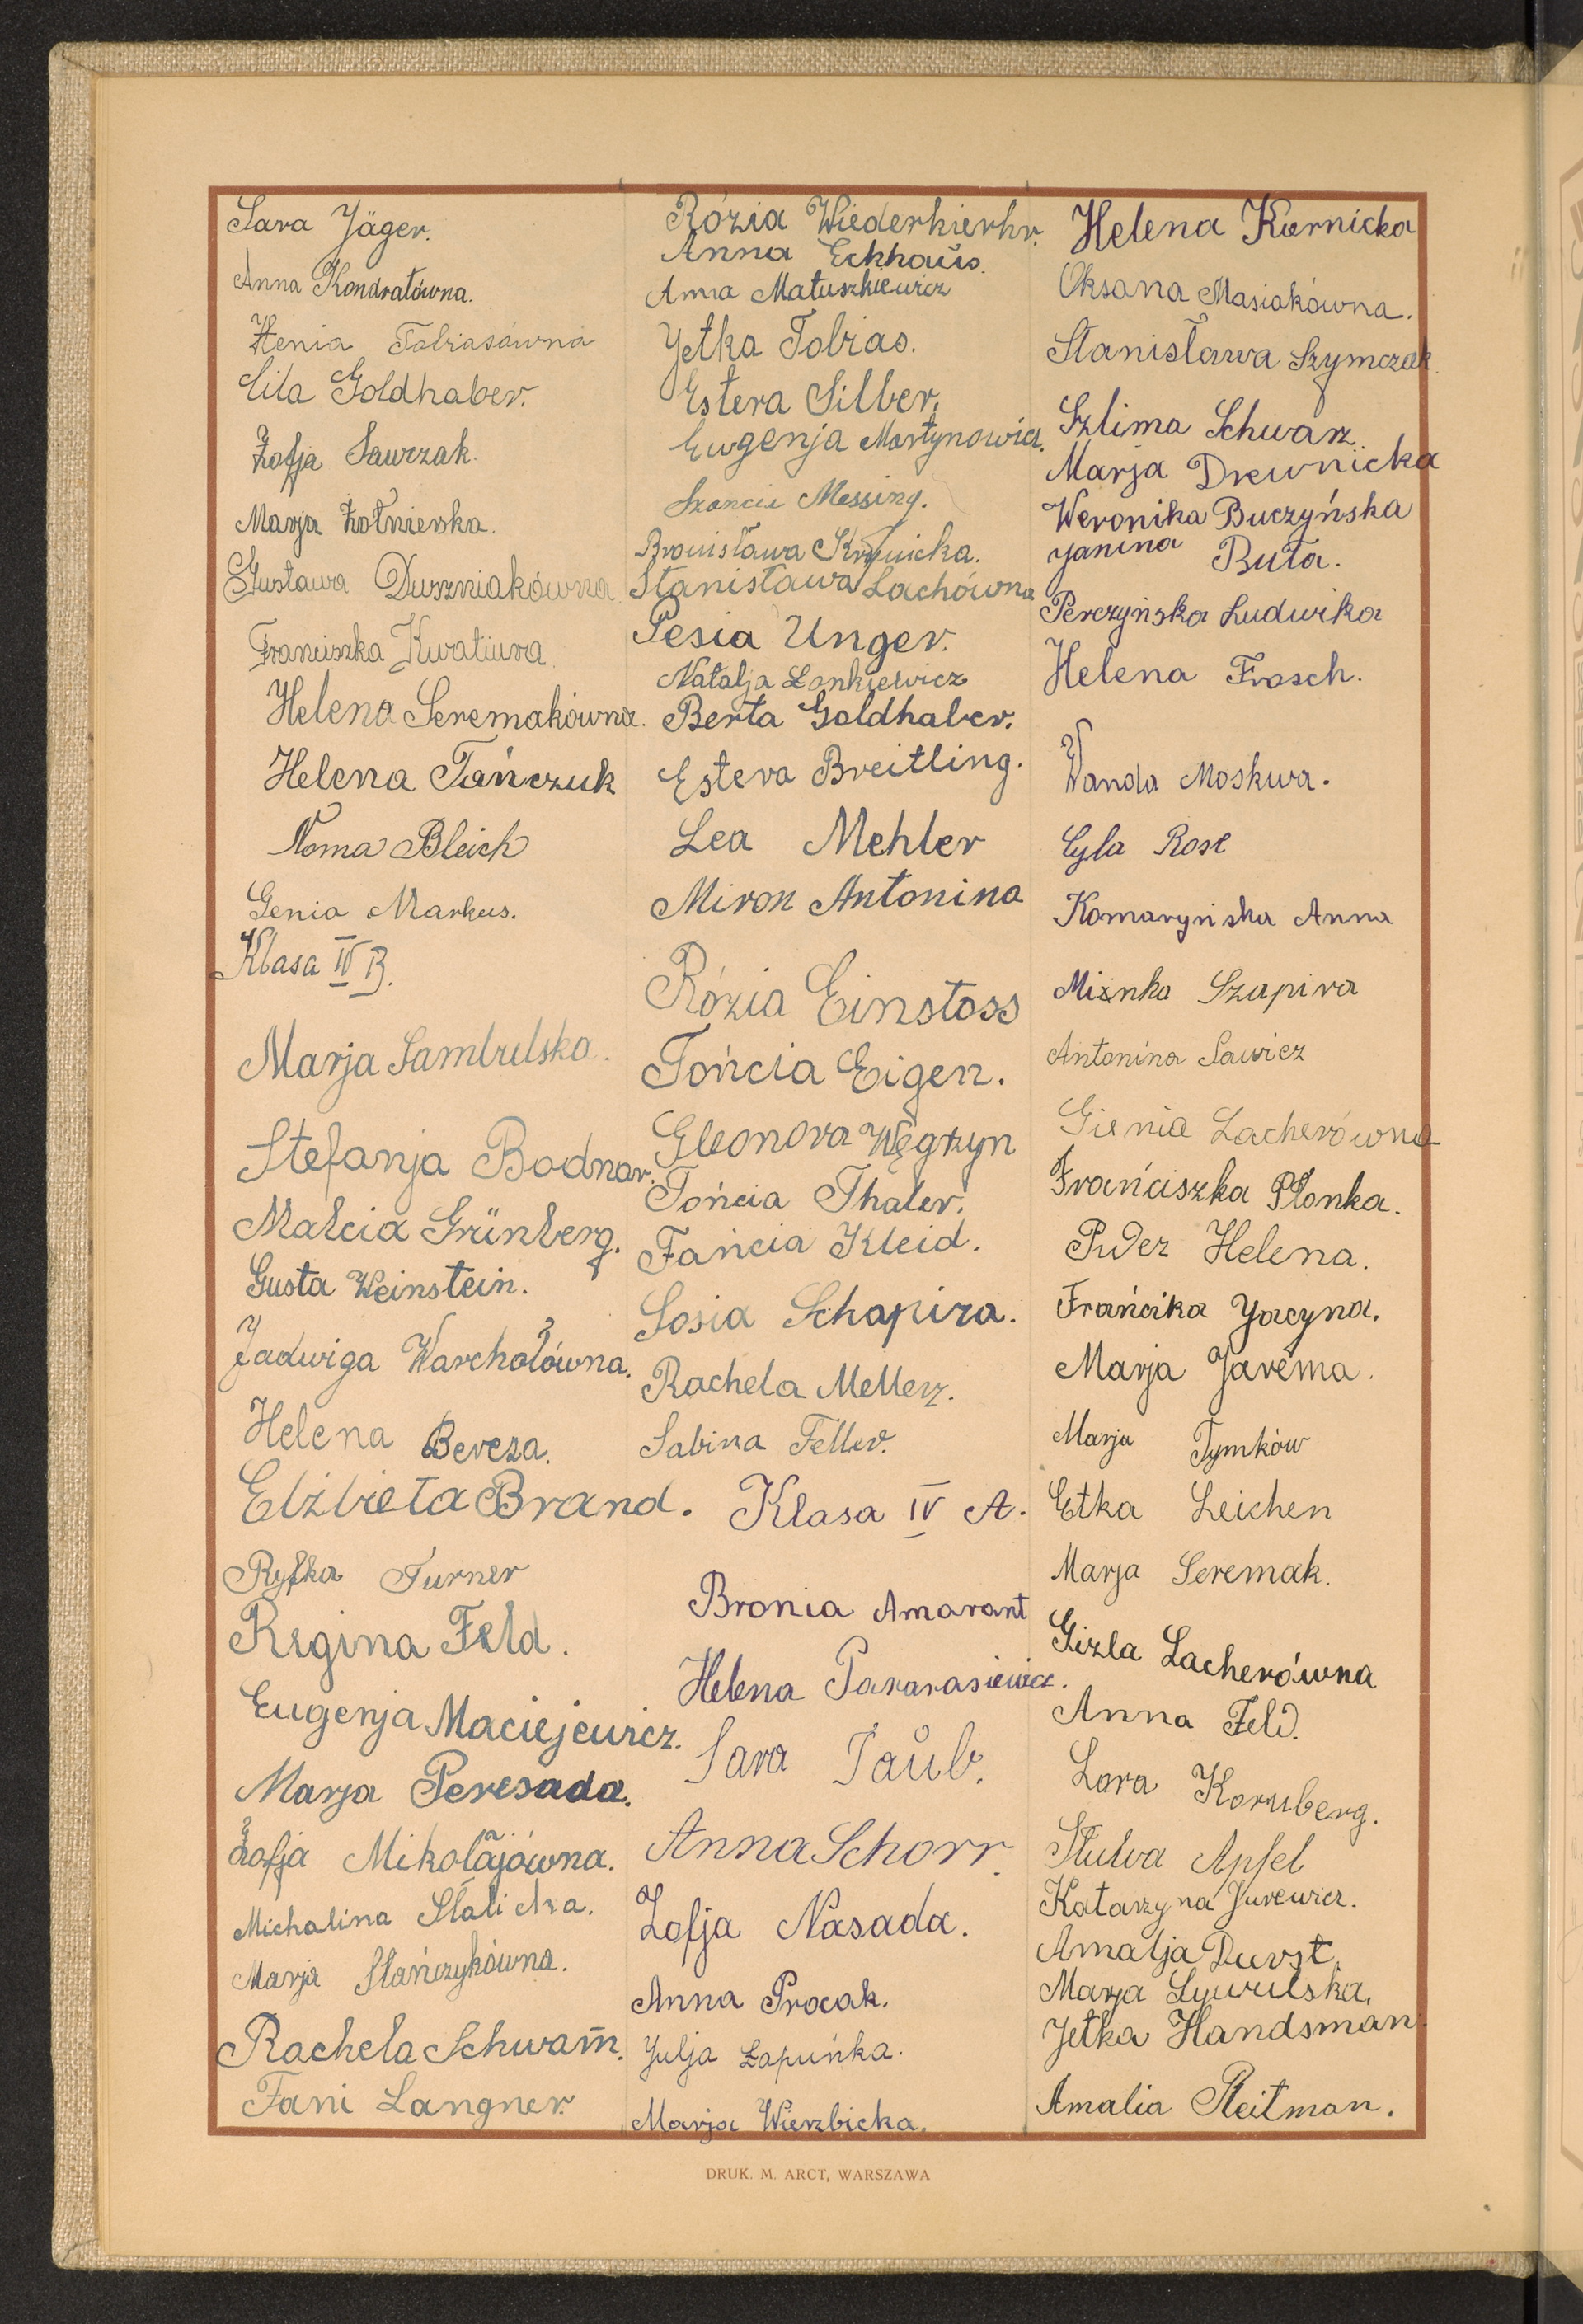 Sara Jäger.
Anna Kondratówna.
Henia Tobiasówna
Lila Goldhaber.
Zofja Sawczak.
Marja Żołnierska.
Gustawa Duszniakówna
Franciszka Kwatiura.
Helena Seremakówna.
Helena Tańczuk
Noma Bleich
Genia Markus.
Klasa IV B.
Marja Sambulska.
Stefanja Bodnar.
Malcia Grünberg.
Gusta Weinstein.
Jadwiga Warchołówna.
Helena Bereza.
Elżbieta Brand.
Ryfka Turner
Regina Feld.
Eugenja Maciejewicz.
Marja Peresada.
Zofja Mikołajówna.
Michalina
Marja Stańczykówna.
Rachela Schwam̄.
Fani Langner.
Rózia Wiederkierhr.
Anna Eckhaŭs.
Anna Matuszkiewicz
Jetka Tobias.
Estera Silber.
Eugenja Martynowicz.
Messing.
Bronisława Krynicka.
Stanisława Lachówna
Pesia Unger.
Natalja Lankiewicz
Berta Goldhaber.
Estera Breitling.
Lea Mehler
Miron Antonina
Rózia Einstoss
Tońcia Eigen.
Eleonora Węgrzyn
Tońcia Thaler.
Fańcia Kleid.
Sosia Schapira.
Rachela Mellerz.
Sabina Feller.
Klasa IV A.
Bronia Amarant
Helena
Sara Taŭb.
Anna Schorr.
Zofja Nasada.
Anna Procak.
Julja Łapuńka.
Marja Wierzbicka.
Helena Kurnicka
Oksana Masiakówna.
Stanisława Szymczak.
Szlima Schwarz.
Marja Drewnicka
Weronika Buczyńska
Janina Buła.
Perczyńska Ludwika
Helena Frosch.
Wanda Moskwa.
Cyla Rose
Komaryńska Anna
Minka Szapira
Antonina Sawicz
Gienia Lacherówna
Frańciszka Płonka.
Puder Helena.
Frańcika Jacyna.
Marja Jarema.
Marja Tymków
Etka Leichen
Marja Seremak.
Gizla Lacherówna
Anna Feld.
Lora Kornberg.
Apfel
Katarzyna Jurewicz.
Amalja Durst.
Marja Lywulska.
Jetka Handsman.
Amalia Reitman.
DRUK. M. ARCT, WARSZAWA